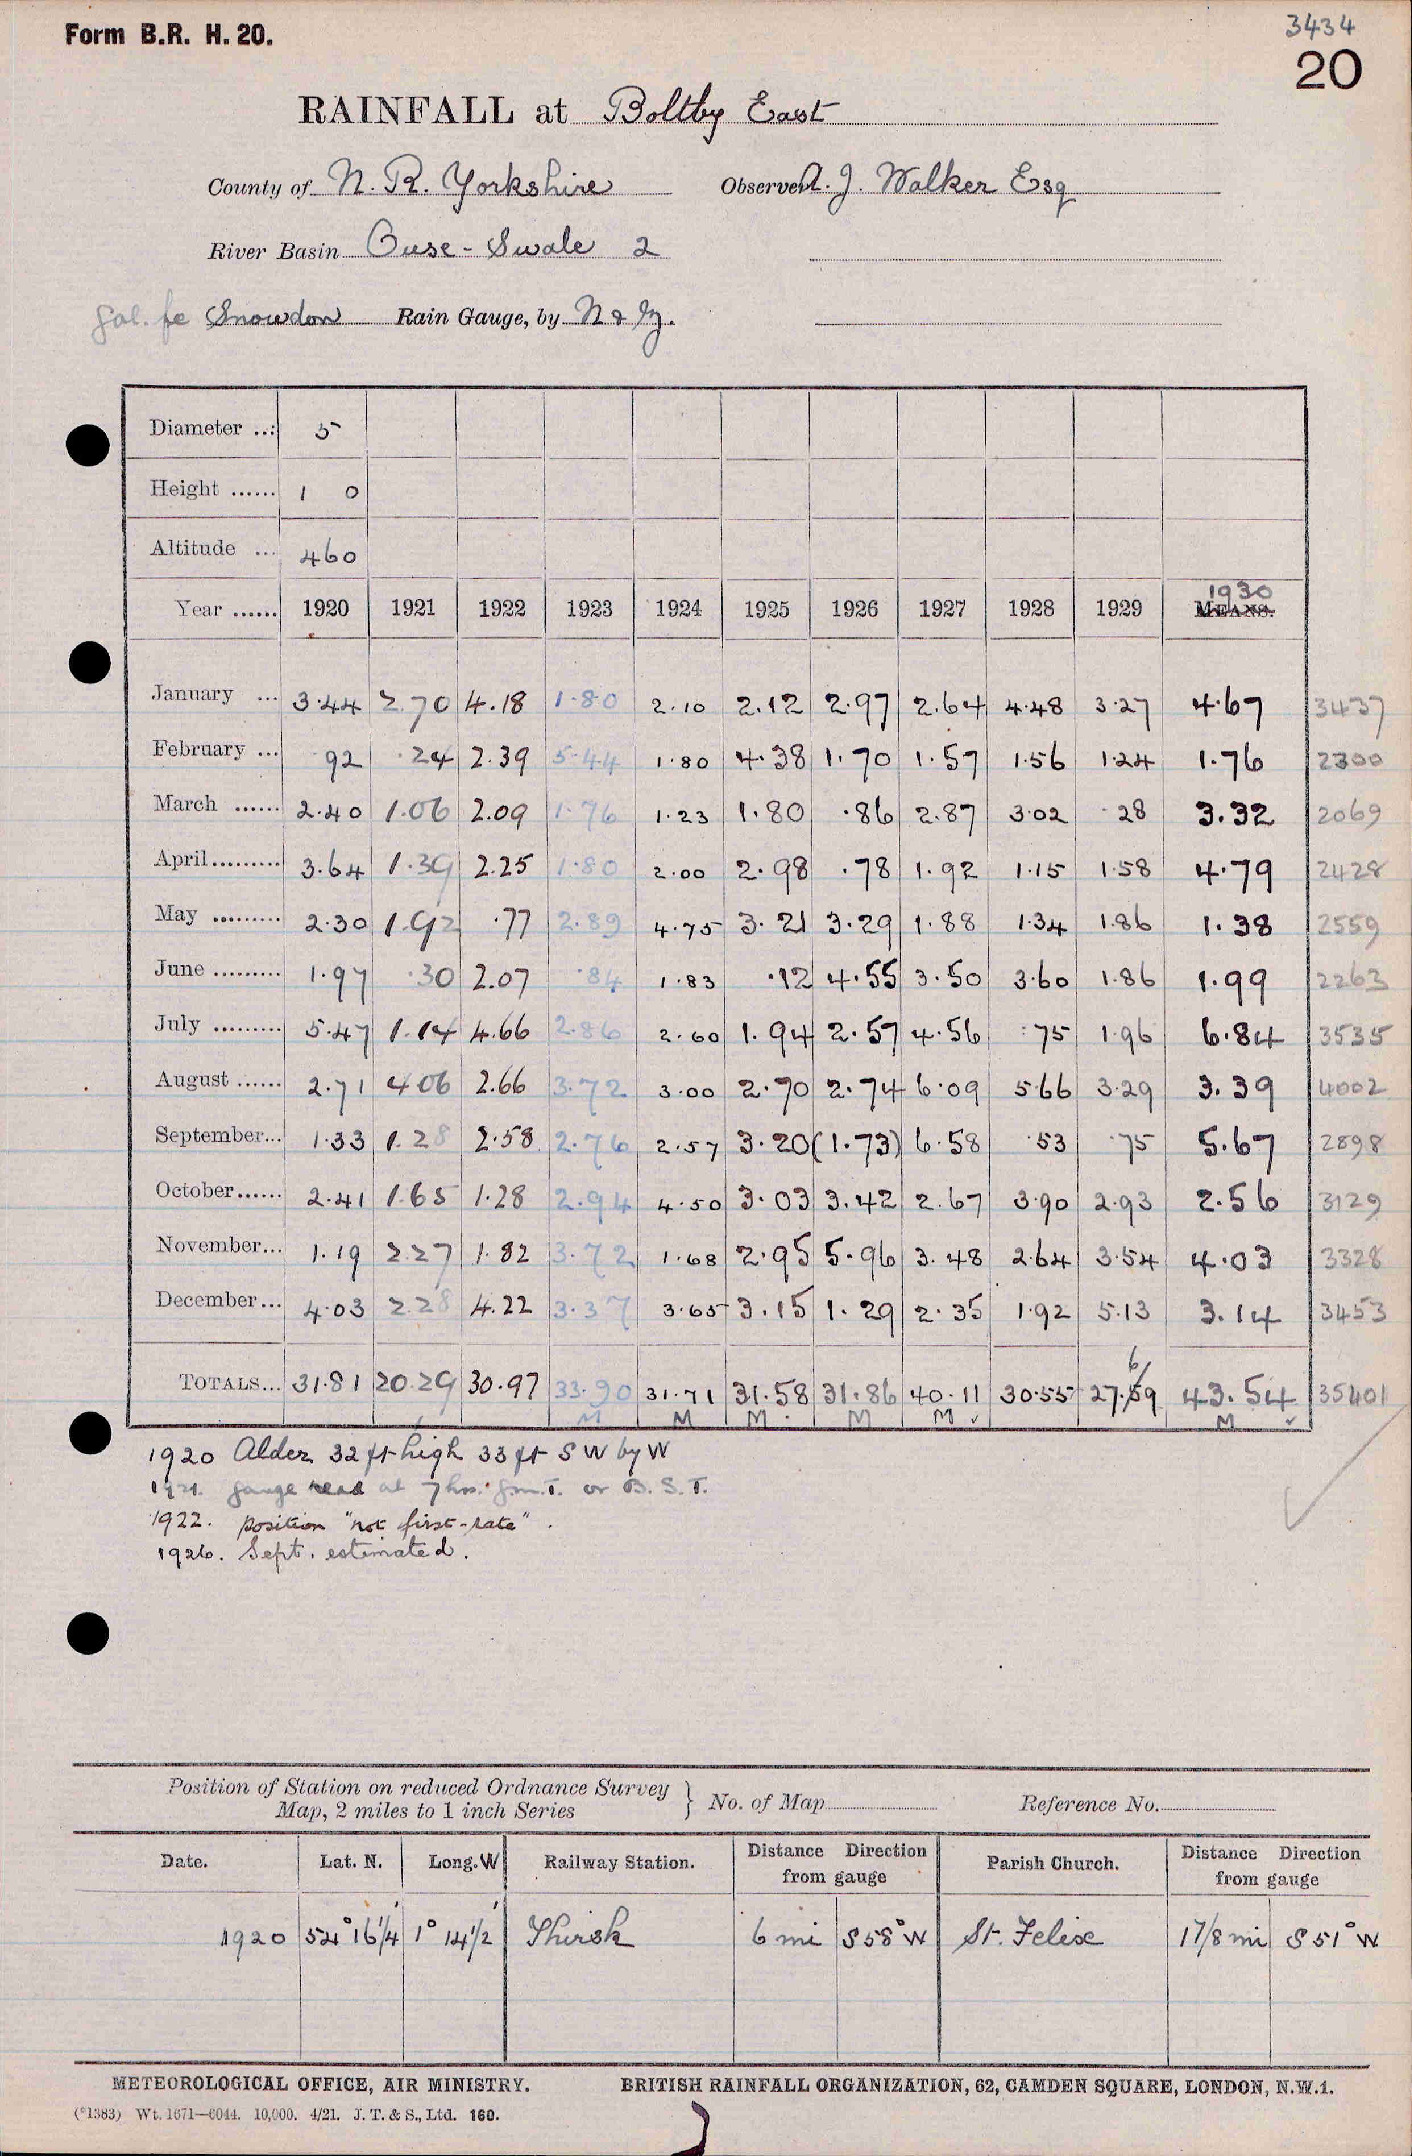 Form B.R. H. 20.
3434
20
RAINFALL at Boltby East
County of N. R. Yorkshire Observer A. J. Walker Esq
River Basin Ouse - Swale 2
gal. fe Snowdon Rain Gauge, by N & Z.
Diameter ... 5
Height ...... 1 0
Altitude ... 460
Year ...... 1920 1921 1922 1923 1924 1925 1926 1927 1928 1929 1930 MEANS.
January ... 3.44 2.70 4.18 1.80 2.10 2.12 2.97 2.64 4.48 3.27 4.67 3437
February ... .92 .24 2.39 5.44 1.80 4.38 1.70 1.57 1.56 1.24 1.76 2300
March ...... 2.40 1.06 2.09 1.76 1.23 1.80 .86 2.87 3.02 .28 3.32 2069
April ......... 3.64 1.39 2.25 1.80 2.00 2.98 .78 1.92 1.15 1.58 4.79 2428
May ......... 2.30 1.92 .77 2.89 4.75 3.21 3.29 1.88 1.34 1.86 1.38 2559
June ......... 1.97 .30 2.07 .84 1.83 .12 4.55 3.50 3.60 1.86 1.99 2263
July ......... 5.47 1.14 4.66 2.86 2.60 1.94 2.57 4.56 .75 1.96 6.84 3535
August ...... 2.71 4.06 2.66 3.72 3.00 2.70 2.74 6.09 5.66 3.29 3.39 4002
September... 1.33 1.28 2.58 2.76 2.57 3.20 (1.73) 6.58 .53 .75 5.67 2898
October...... 2.41 1.65 1.28 2.94 4.50 3.03 3.42 2.67 3.90 2.93 2.56 3129
November... 1.19 2.27 1.82 3.72 1.68 2.95 5.96 3.48 2.64 3.54 4.03 3328
December... 4.03 2.28 4.22 3.37 3.65 3.15 1.29 2.35 1.92 5.13 3.14 3453
6
TOTALS... 31.81 20.29 30.97 33.90 31.71 31.58 31.86 40.11 30.55 27.59 43.54 35401
M M M M M ✓ M ✓
1920 Alder 32 ft high 33 ft S W by W
1921. gauge read at 7 hrs. G.m.T. or B. S. T.
1922. position "not first-rate".
1926. Sept. estimated.
Position of Station on reduced Ordnance Survey
Map, 2 miles to 1 inch Series } No. of Map Reference No.
Date. Lat. N. Long. W Railway Station. Distance Direction from gauge Parish Church. Distance Direction from gauge
1920 54° 16 1/4' 1° 14 1/2' Thirsk 6 mi S 58° W St. Felix 1 7/8 mi S 51° W
METEOROLOGICAL OFFICE, AIR MINISTRY. BRITISH RAINFALL ORGANIZATION, 62, CAMDEN SQUARE, LONDON, N.W.1.
(*1383) Wt. 1671—6044. 10,000. 4/21. J. T. & S., Ltd. 160.